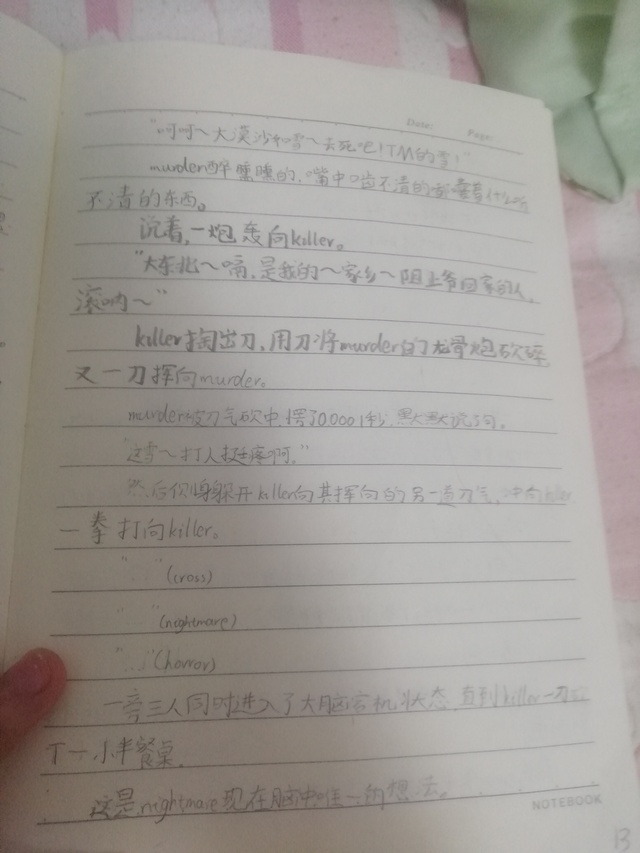 Date: Page:
"呵呵～大漠沙如雪～去死吧！TM的雪！"
murder醉醺醺的，嘴中口齿不清的嘟囔着什么听
不清的东西。
沉着，一炮轰向killer。
"大东北～嗝，是我的～家乡～阻止爷回家的人，
滚呐～"
killer掏出刀，用刀将murder的龙骨炮砍碎，
又一刀挥向murder。
murder被刀气砍中，愣了0.0001秒，默默说了句。
"这雪～打人挺疼啊。"
然后侧身躲开killer向其挥向的另一道刀气，冲向killer
一拳打向killer。
"……"(cross)
"……"(nightmare)
"……"(horror)
一旁三人同时进入了大脑宕机状态，直到killer一刀
了一小半餐桌。
这是nightmare现在脑中唯一的想法。
NOTEBOOK
13